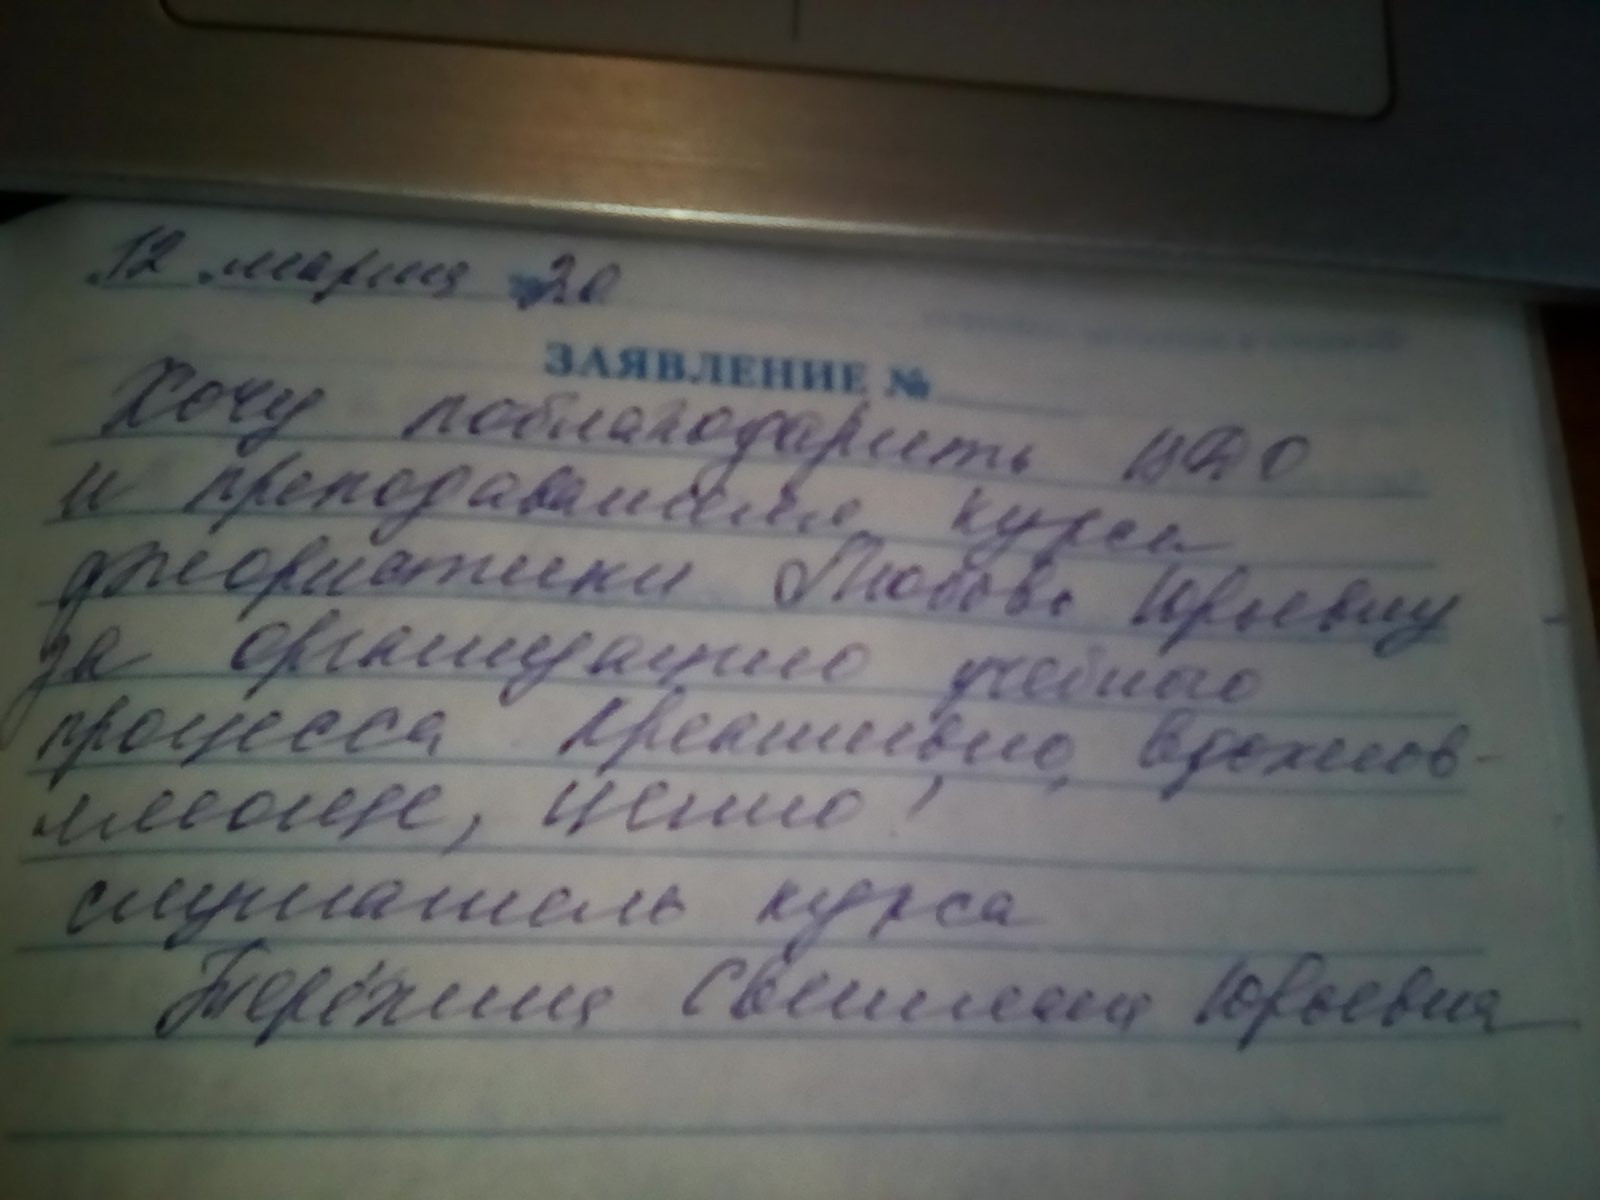 12 марта 20
ЗАЯВЛЕНИЕ №
Хочу поблагодарить ЦДО
и преподавателя курса
флористики Любовь Юрьевну
за организацию учебного
процесса. Креативно, вдохнов-
ляюще, ценно!
слушатель курса
Светлана Юрьевна